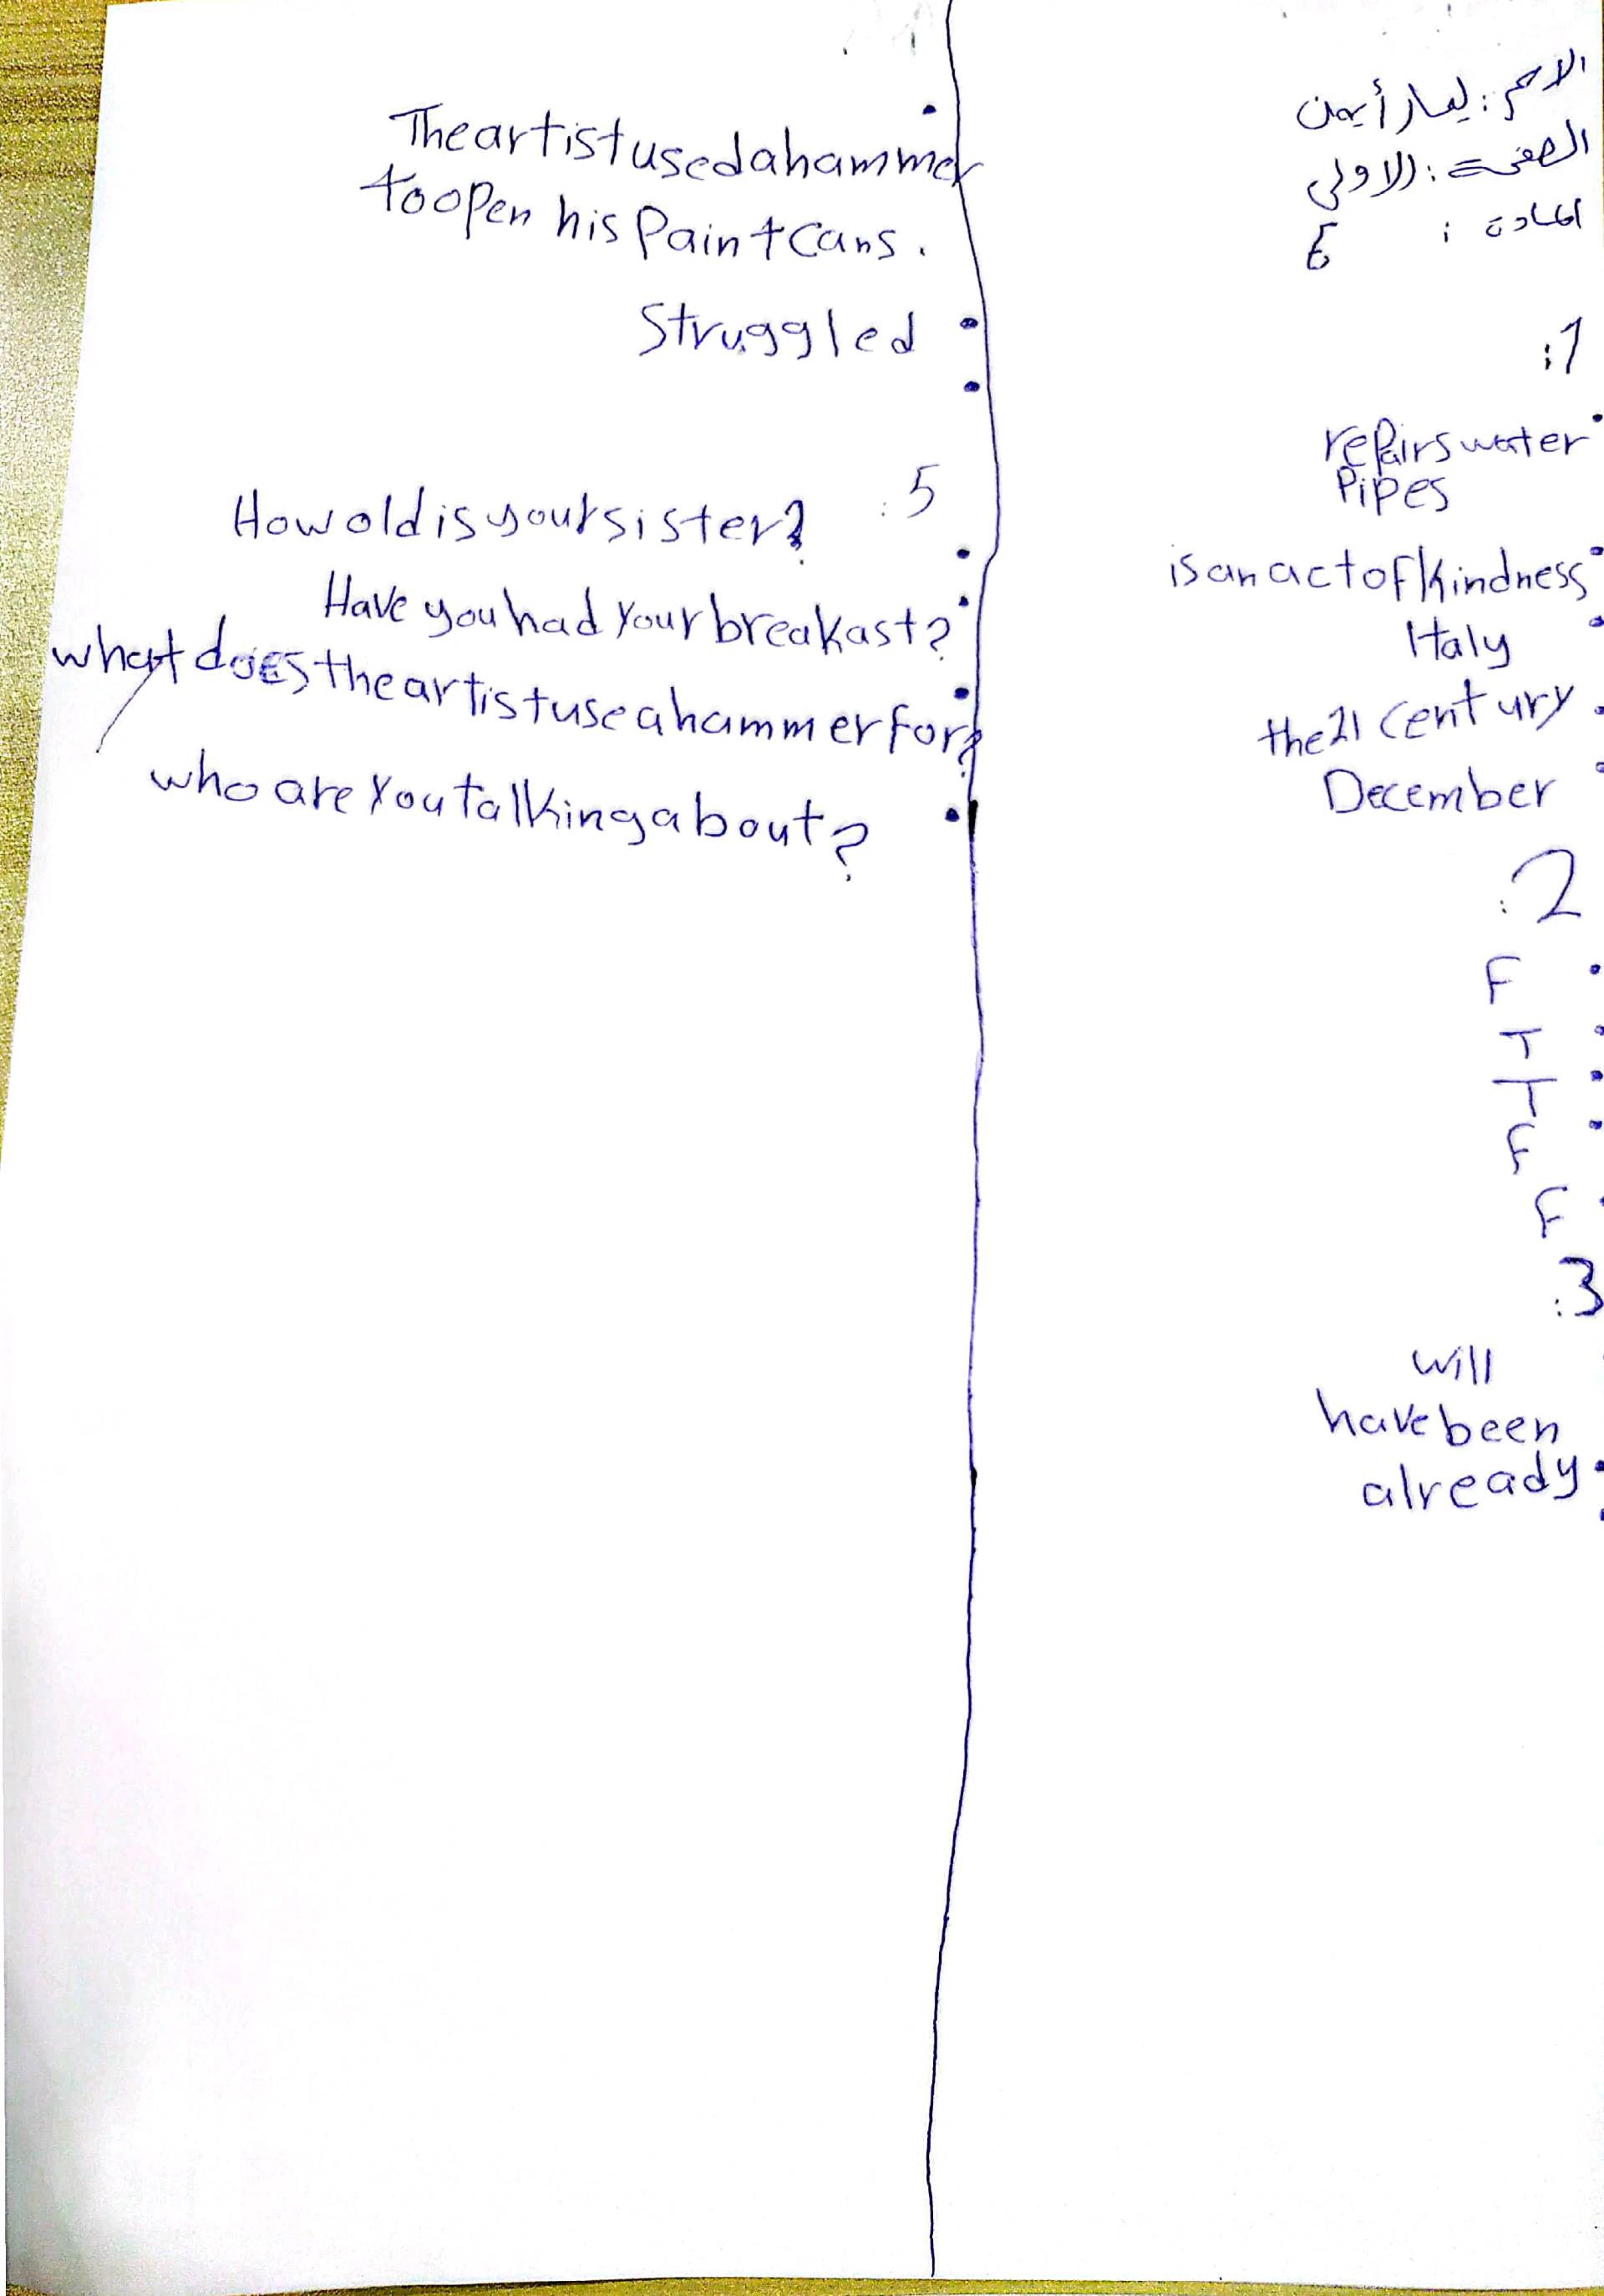 الاسم: ليسار أيمن
الصفحة: الاولى
المادة: E
1:
repairs water
Pipes
is an act of Kindness
Italy
the 21 century
December
2:
F
T
T
F
F
3:
will
have been
already
The artist used a hammer
to open his Paint Cans.
Struggled
5:
How old is your sister?
Have you had your breakast?
what does the artist use a hammer for?
who are you talking about?